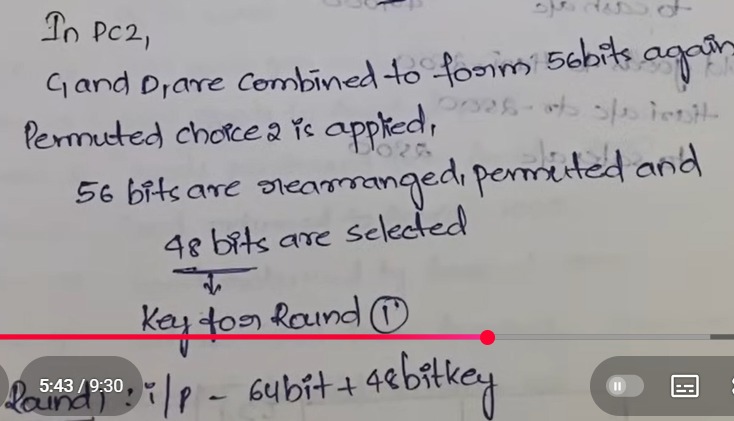 In PC2,
C1 and D1 are combined to form 56bits again
Permuted choice 2 is applied,
56 bits are rearranged, permuted and
48 bits are selected
Key for Round ①
5:43 / 9:30
Round1 : i/p - 64bit + 48bitkey